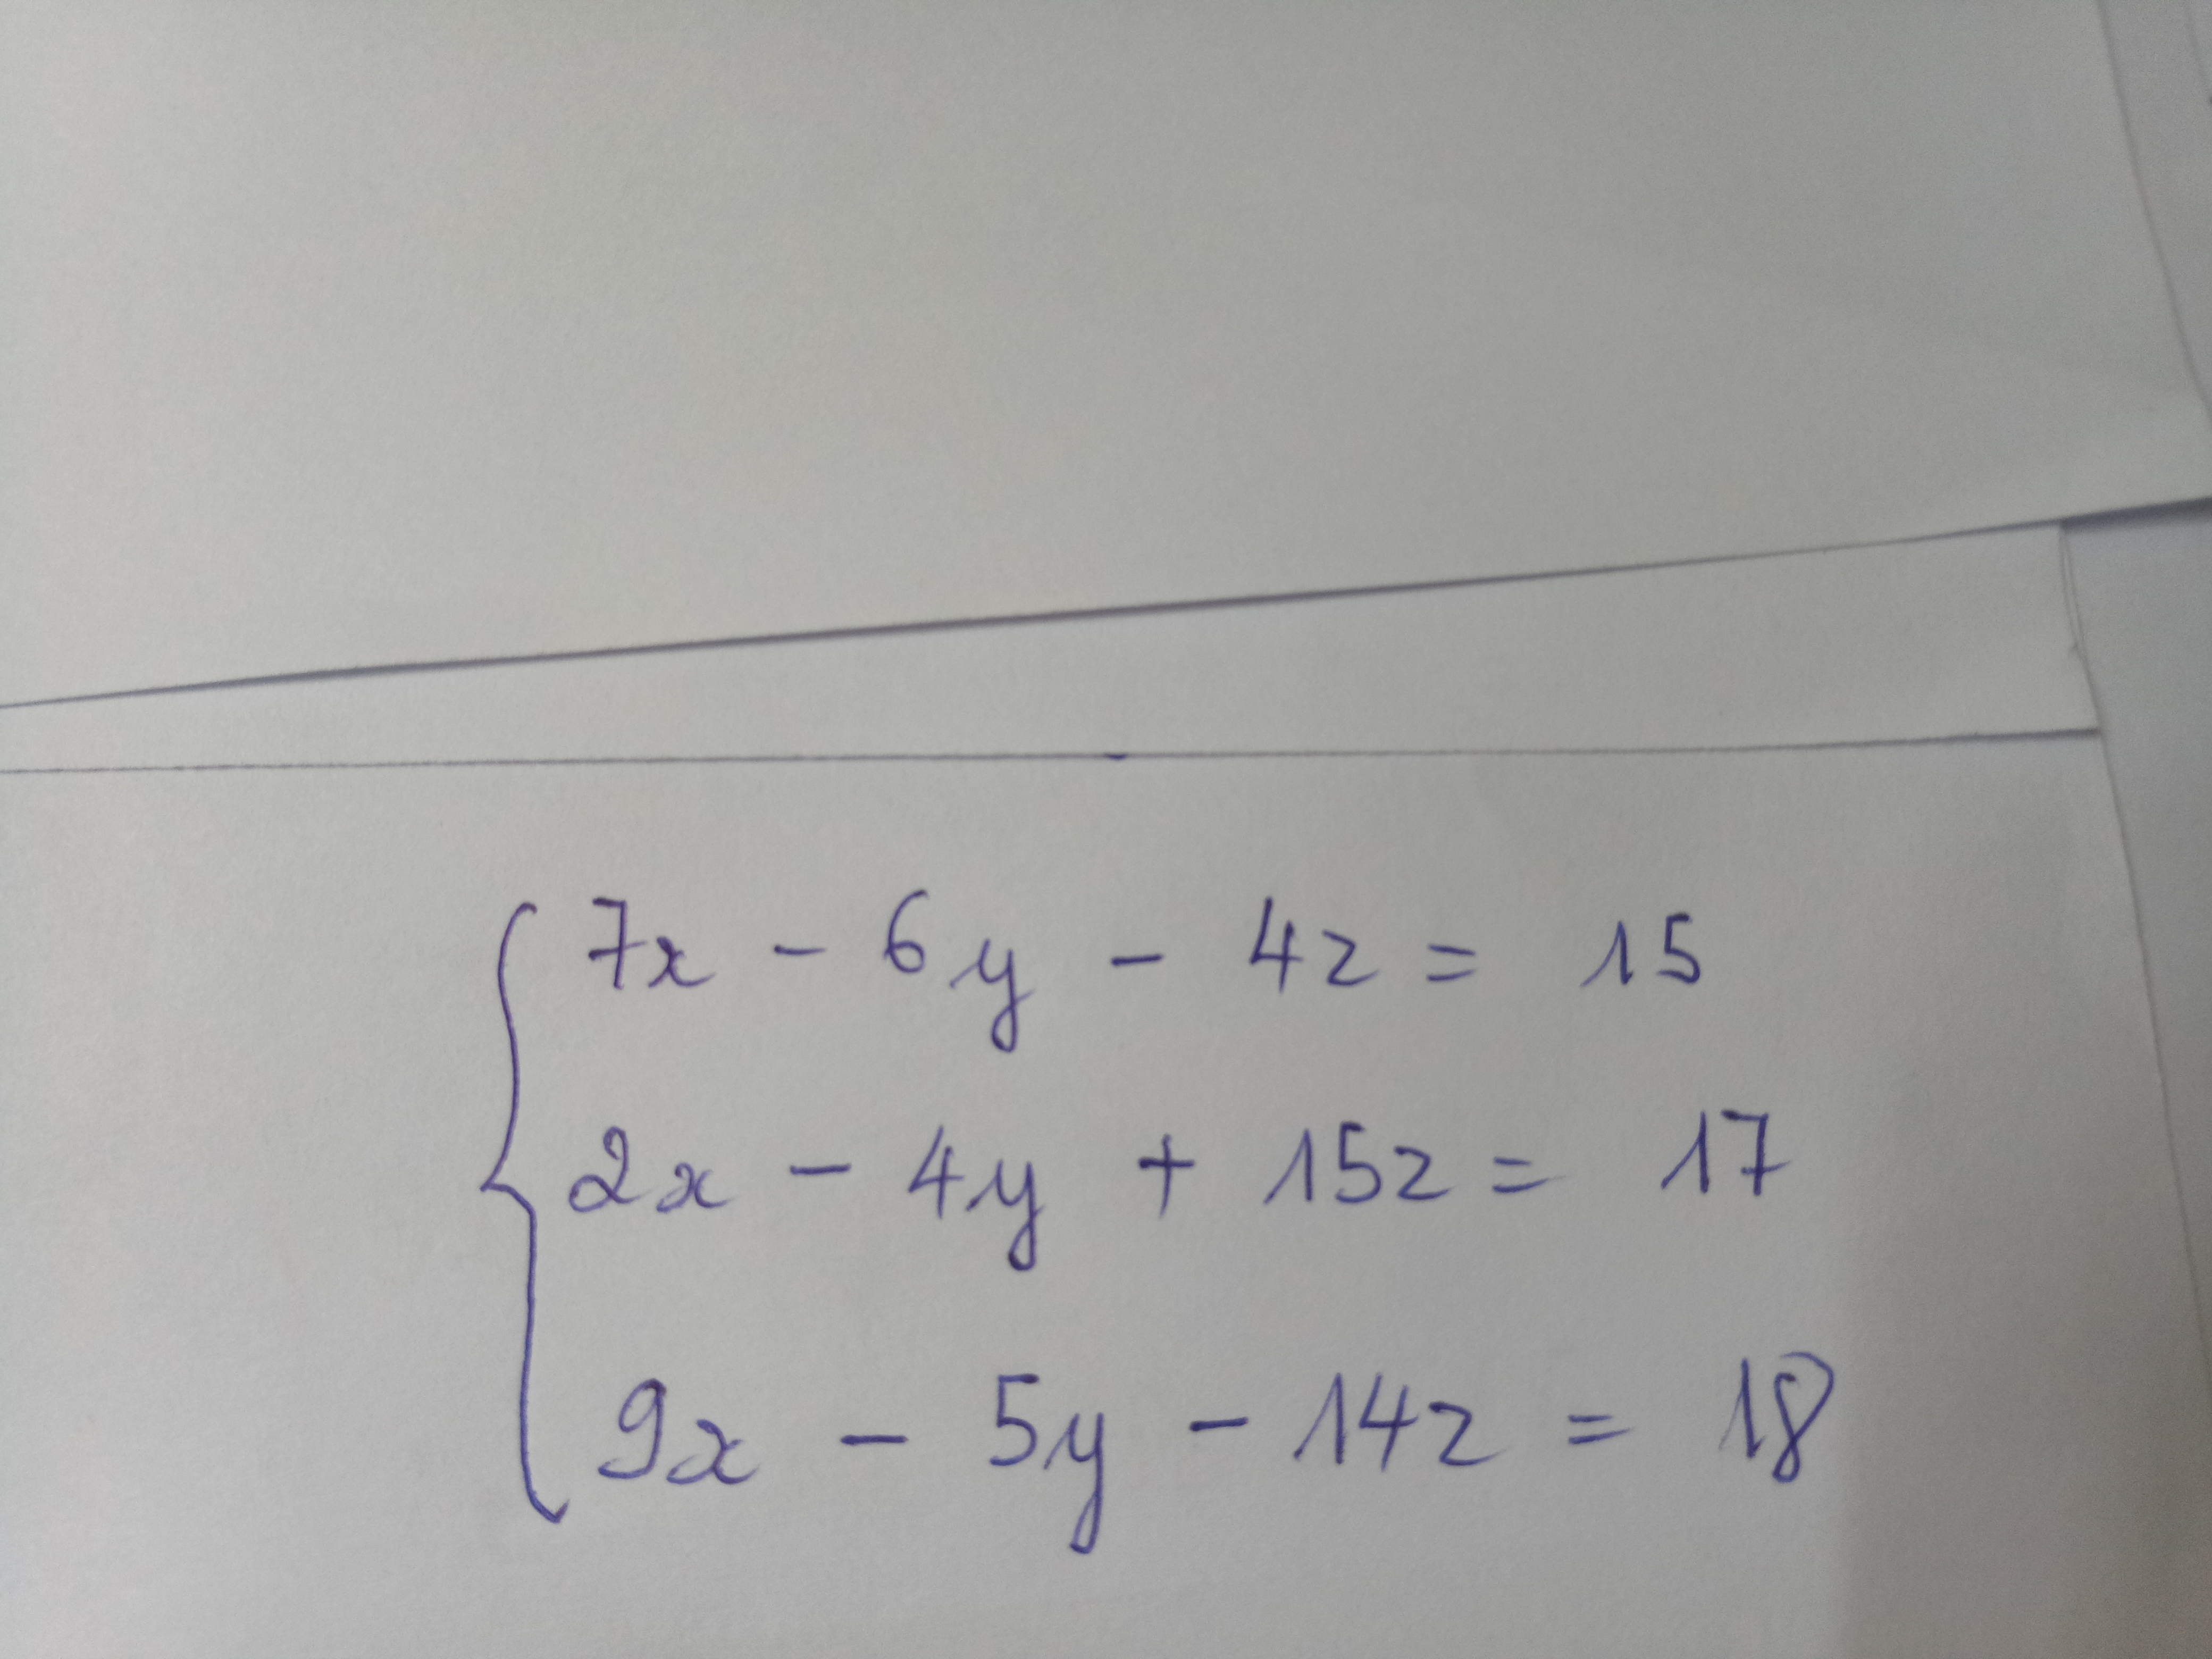 7x - 6y - 4z = 15
2x - 4y + 15z = 17
9x - 5y - 14z = 18